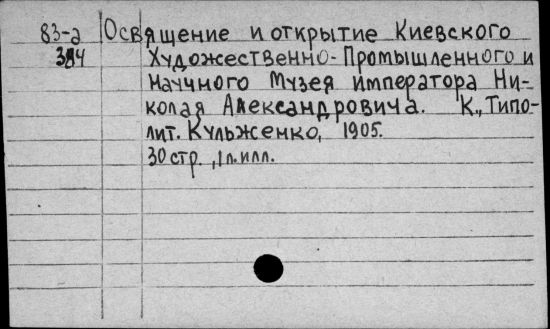 83-а Освящение и открытие Киевского
Художественно-Промышленного и
научного Музея императора Ни-
колая Александровича. К., Типо-
лит. Кульженко, 1905.
30 стр., 1 л. илл.